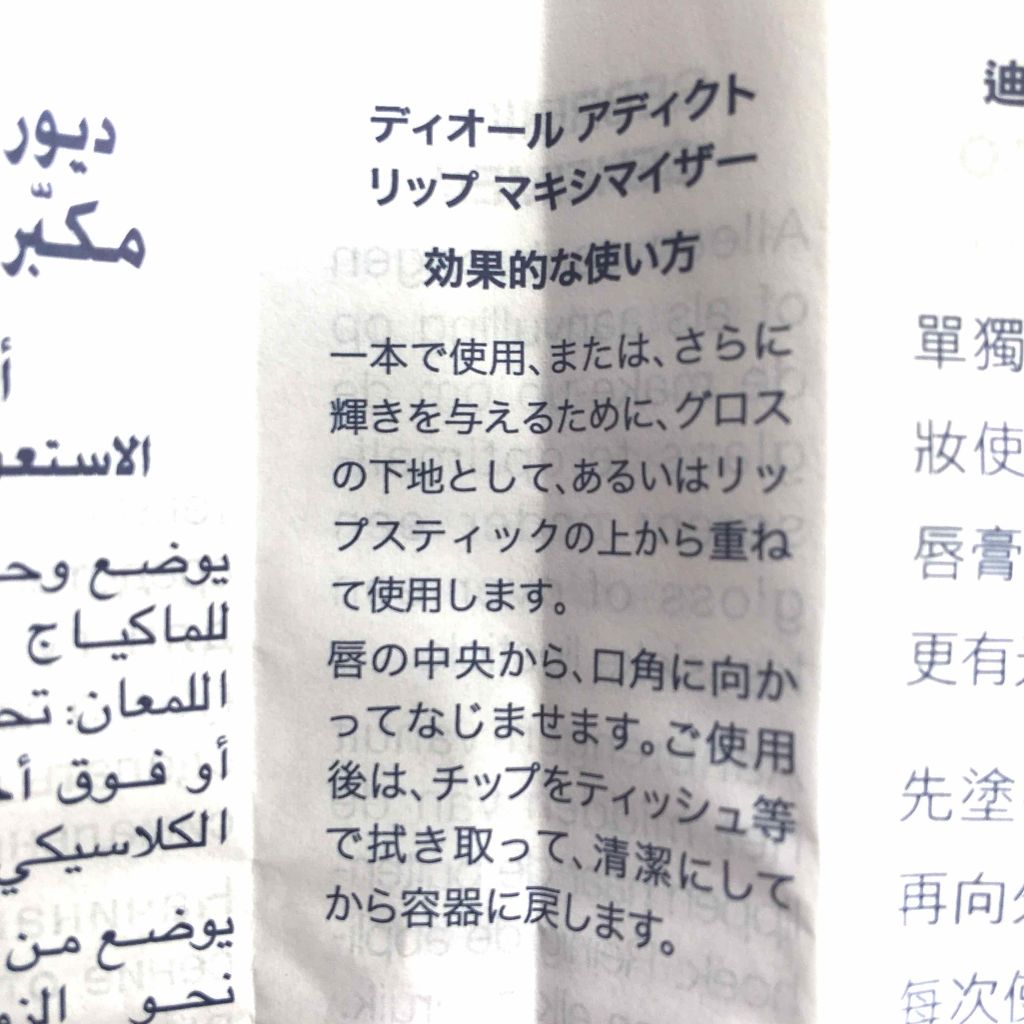 ديور
مكبّر
الاستعم
يوضـع وحـ
للماكيـاج
اللمعان: تحـ
أو فـوق أحـ
الكلاسيكي
يوضـع مـن
نحـو الزو
ディオール アディクト
リップ マキシマイザー
効果的な使い方
一本で使用、または、さらに
輝きを与えるために、グロス
の下地として、あるいはリッ
プスティックの上から重ね
て使用します。
唇の中央から、口角に向か
ってなじませます。ご使用
後は、チップをティッシュ等
で拭き取って、清潔にして
から容器に戻します。
迪
單獨
妝使
唇膏
更有
先塗
再向
每次使